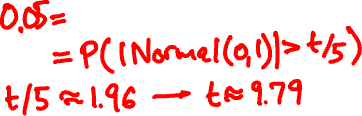 0.05=
=P(|Normal(0,1)|>t/5)
t/5≈1.96 → t≈9.79